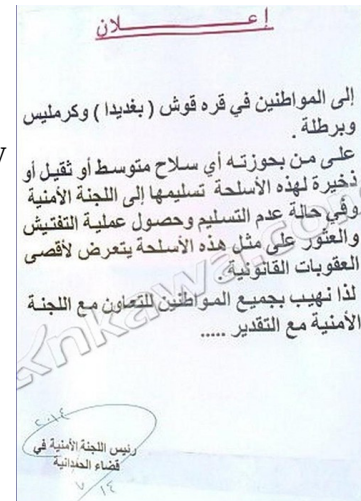 إعـــــــــلان
إلى المواطنين في قره قوش ( بغديدا ) وكرمليس
وبرطلة .
على من بحوزته أي سلاح متوسط أو ثقيل أو
ذخيرة لهذه الأسلحة تسليمها إلى اللجنة الأمنية
وفي حالة عدم التسليم وحصول عملية التفتيش
والعثور على مثل هذه الأسلحة يتعرض لأقصى
العقوبات القانونية.
لذا نهيب بجميع المواطنين للتعاون مع اللجنة
الأمنية مع التقدير .....
ankawa.com
٢٠١٤
رئيس اللجنة الأمنية في
قضاء الحمدانية
٧
١٤